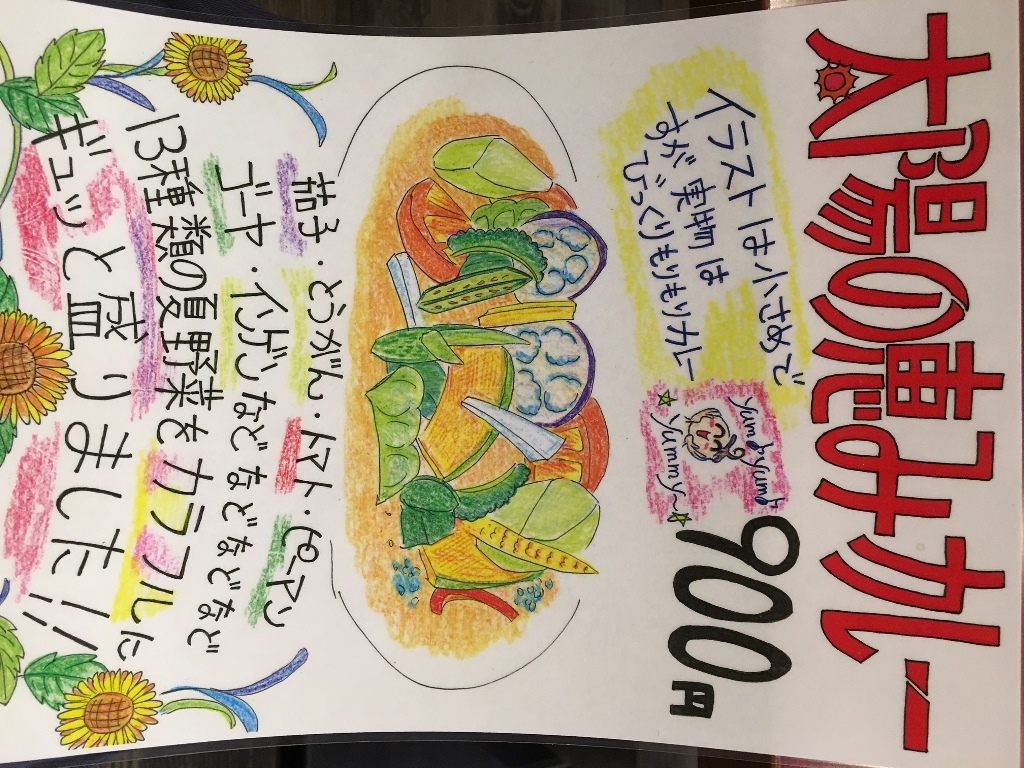 太陽の恵みカレー
イラストは小さめで
すが実物は
びっくりもりもりカレー
yum☆yum☆
☆yummy☆
900円
茄子・とうがん・トマト・ピーマン
ゴーヤ・インゲンなどなどなどなど
13種類の夏野菜をカラフルに
ギュッと盛りました!!